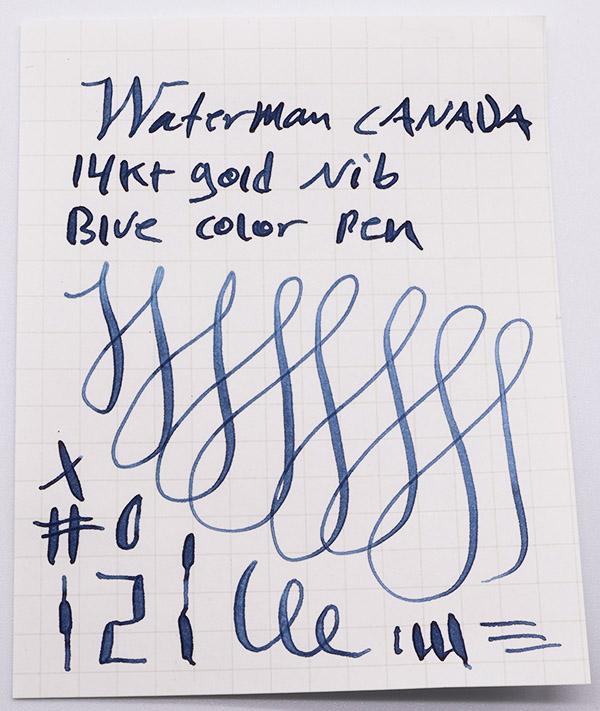 Waterman CANADA
14Kt gold Nib
Blue color Pen
X
# 0
1 2 1